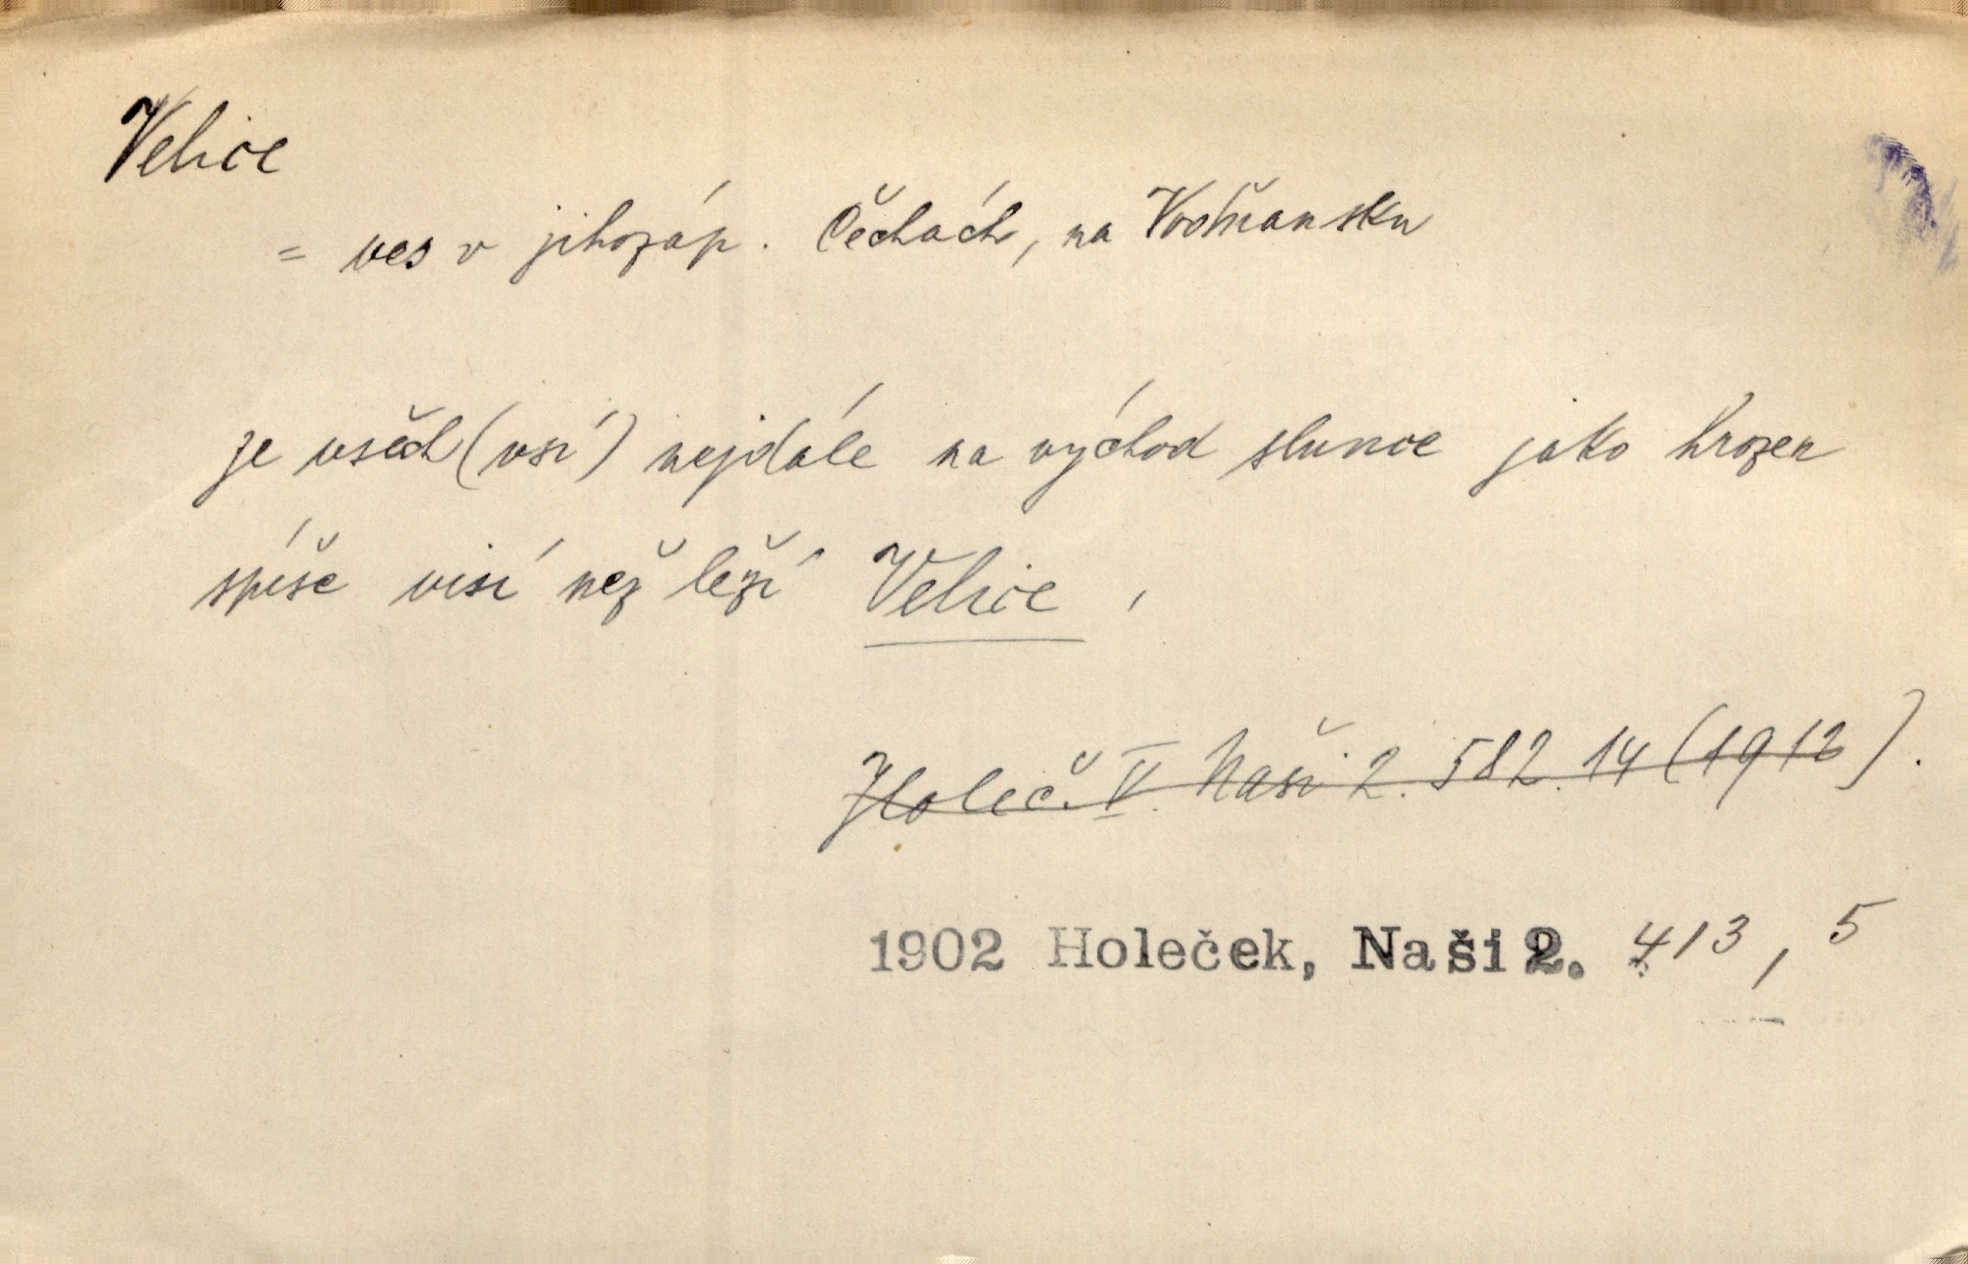 Velice
= ves v jihozáp. Čechách, na Vodňansku
ze všech (vsí) nejdále na východ slunce jako hrozen
spíše visí než leží Velice,
Holeč. V. Naši 2. 582. 14 (1912).
1902 Holeček, Naši 2. 413, 5